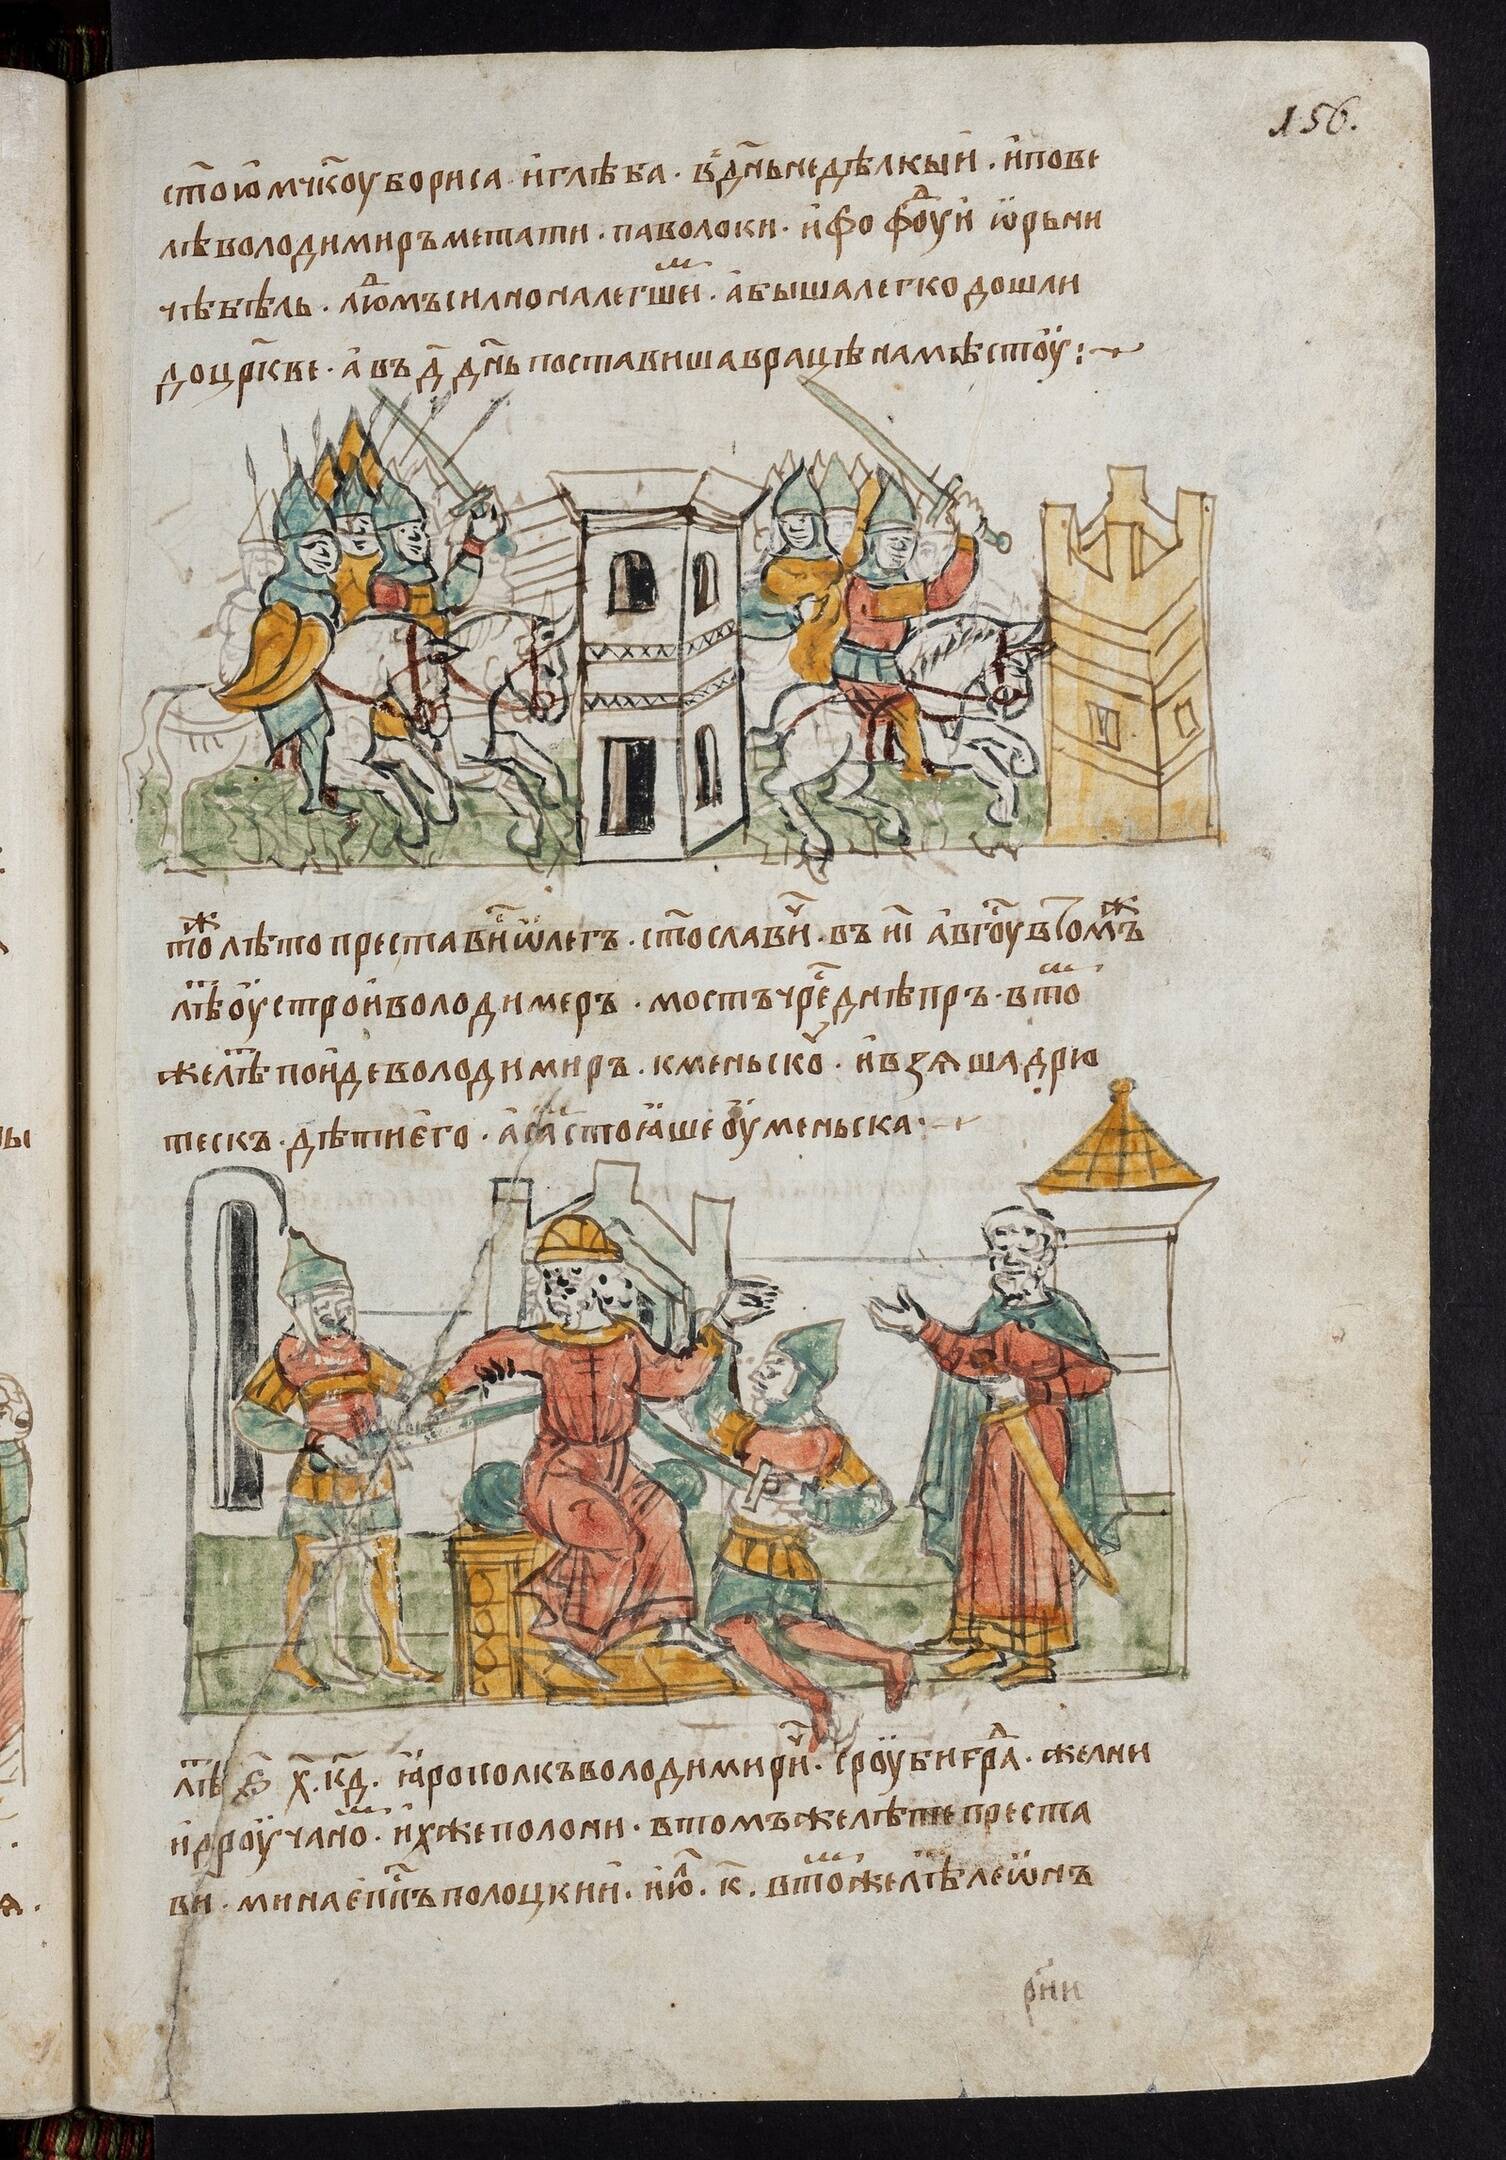 156.
ст҃ою мч҃кѹ бориса и глѣба · в дн҃ь недѣлкыи · и пове
лѣ володимиръ метати · паволоки · и фофоудⷤи ѿрьни
чѣ бѣль · людⷨмъ силно налегшиⷨ · а быша легко дошли
до цр҃кве · а въ д҃ дн҃ь поставиша в рацѣ на мѣстоу :~
тоⷤ лѣто преставиⷭ ѡлегъ · ст҃ославиⷱ · въ и҃і авгоуⷭ в томъⷤ
лѣⷮ оустрои володимеръ · мостъ чресⷭ днѣпръ · в тоⷨ
же лѣⷮ поиде володимиръ · к меньскоⷹ · и взяша дрю
тескъ · дѣти его · а саⷨ стояше оу меньска ·~
лѣⷮ ҂ѕ҃ х҃ к҃д · ярополкъ володимириⷱ · сроуби граⷣ · желни
и дроучаноⷨ · ихже полони · в томъже лѣте преста
виⷭ · мина еп҃пъ полоцкии · июⷩ · к҃ · в тоⷨже лѣⷮ леѡнъ
рн҃и